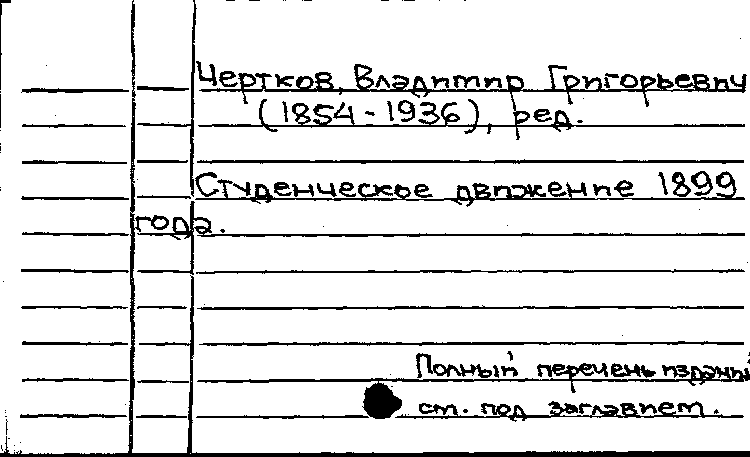 Чертков, Владимир Григорьевич
(1854-1936), ред.
Студенческое движение 1899
года.
Полный перечень изданий
см. под заглавием.